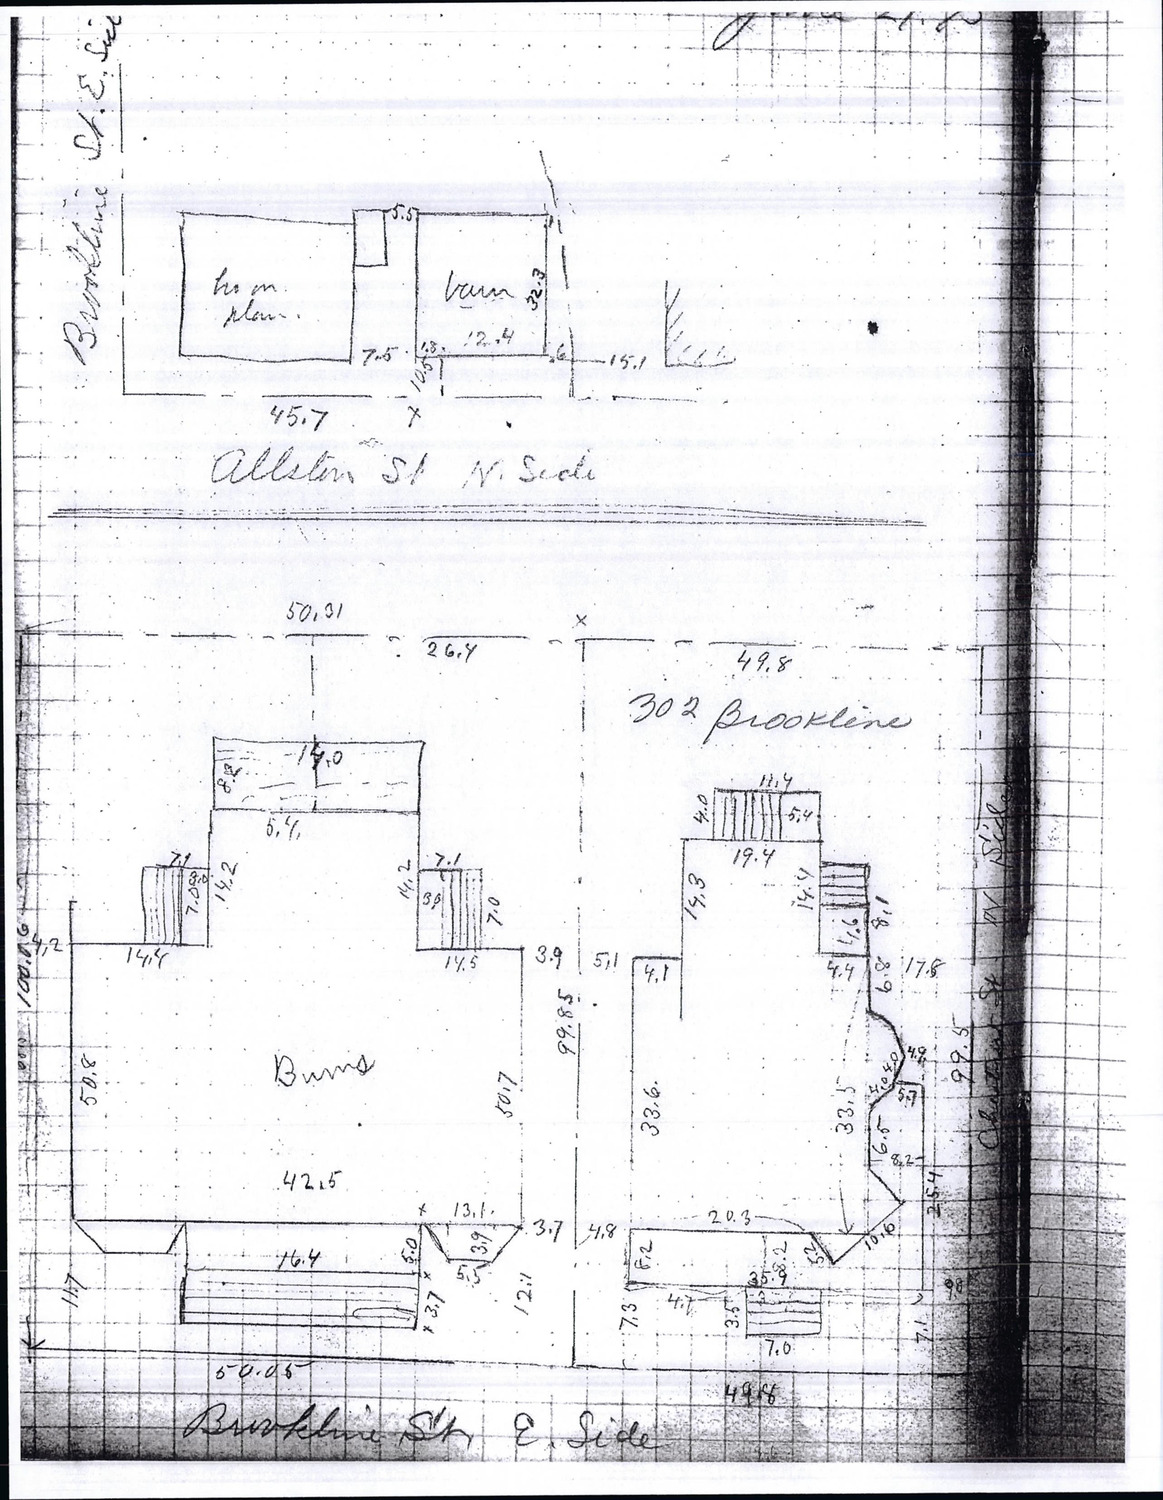 June 21,
Brookline St. E. Side
5.5
barn
32.3
plan.
7.5
1.8
12.4
6
15.1
10.5
45.7
x
Allston St N. Side
50.31
x
26.4
49.8
302 Brookline
14.0
8.2
11.4
4.0
5.4
5.4
19.4
7.1
3.0
7.0
14.2
14.2
7.1
7.0
14.3
14.4
4.6
8.1
4.2
14.4
14.5
3.9
5.1
4.1
4.4
6.8
17.8
100.06
99.85
99.5
N Side
4.9
4.0
4.0
5.7
50.8
Burns
50.7
33.6
33.5
6.5
8.2
25.4
42.5
x
13.1
3.7
4.8
20.3
10.6
16.4
5.0
3.9
5.5
8.2
8.2
35.9
11.7
x 3.7 x
12.1
7.3
4.7
3.5
7.0
7.1
50.05
49.8
Brookline St, E. Side